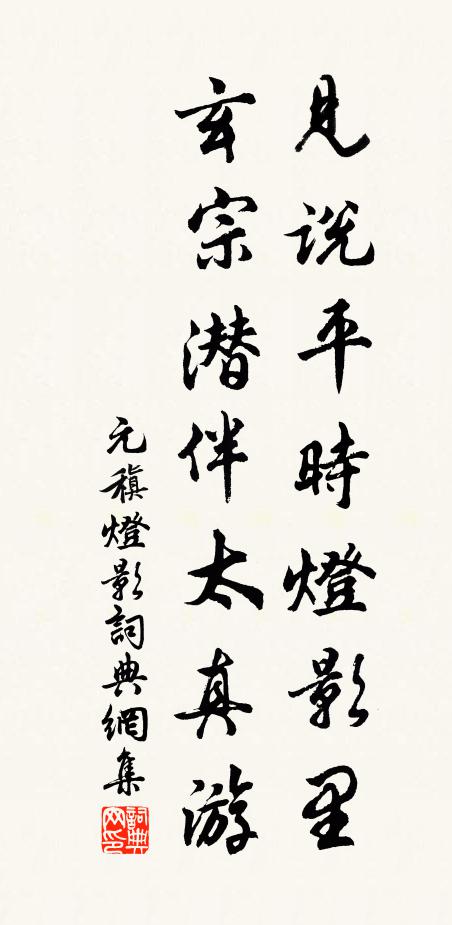 見説平時燈影里
玄宗潜伴太真游
元稹燈影詞典網集
詞典网印